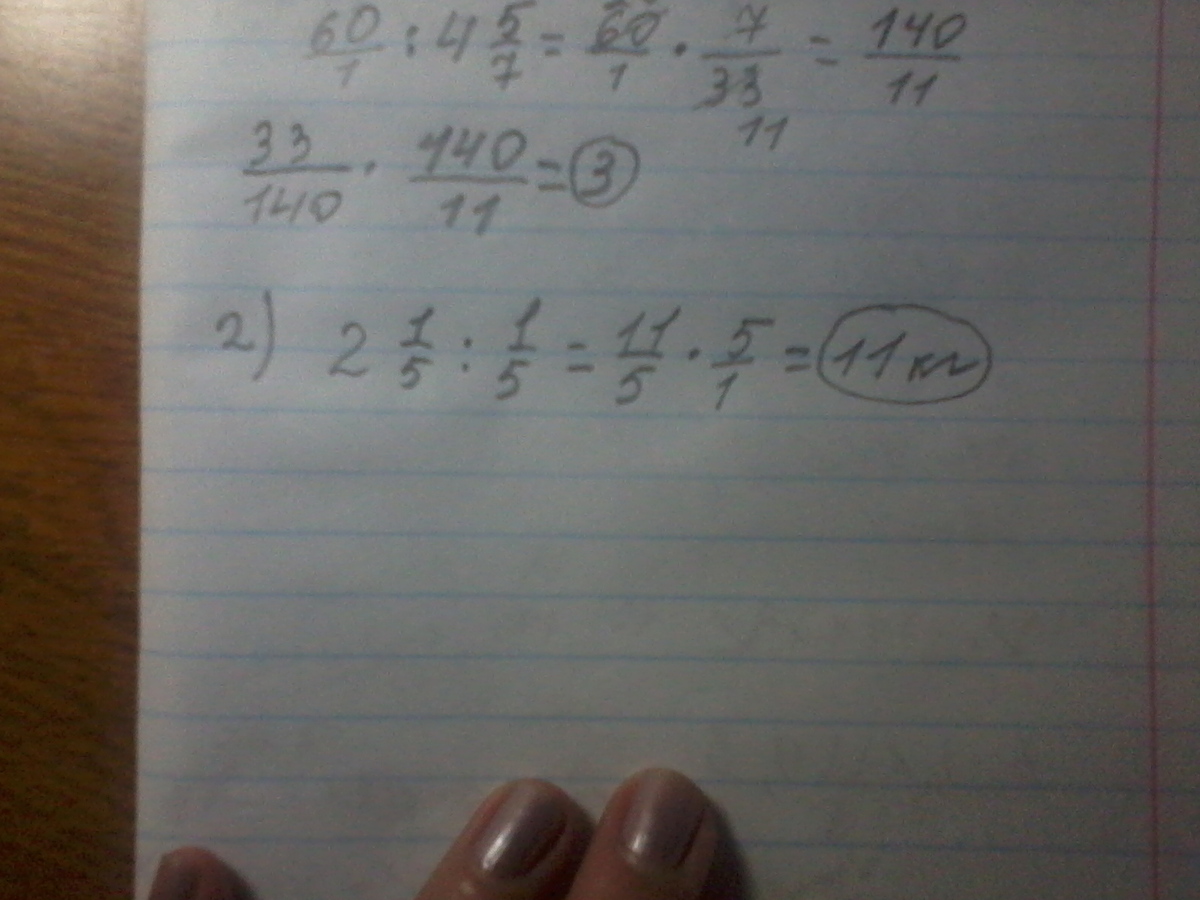 60/1 : 4 5/7 = 60/1 · 7/33 = 140/11
11
33/140 · 140/11 = 3
2) 2 1/5 : 1/5 = 11/5 · 5/1 = 11 кг